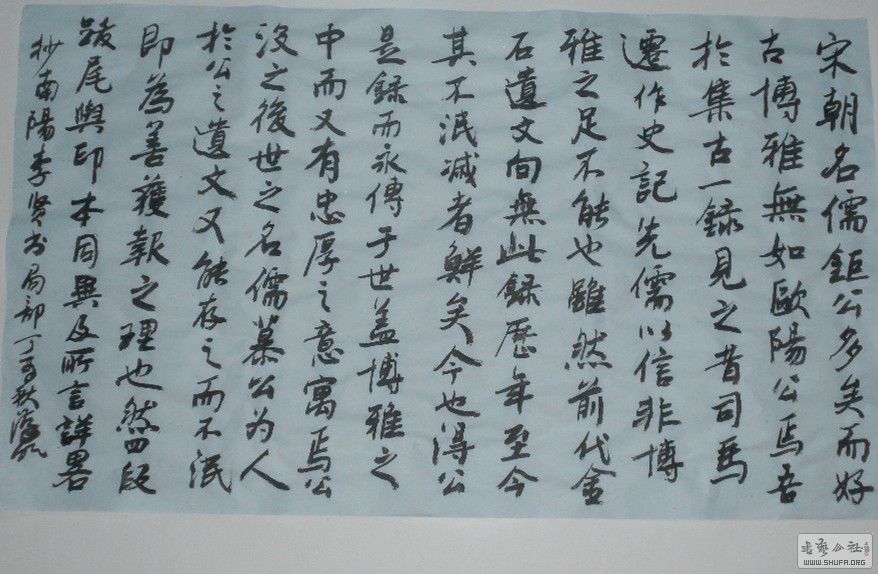 宋朝名儒鉅公多矣而好
古博雅無如歐陽公焉吾
於集古一録見之昔司馬
遷作史記先儒以信非博
雅之足不能也雖然前代金
石遺文向無此録歷年至今
其不泯滅者鮮矣今也得公
是録而永傳于世盖博雅之
中而又有忠厚之意寓焉公
沒之後世之名儒慕公为人
於公之遺文又能存之而不泯
即為善獲報之理也然四段
跋尾與印本同異及所言詳畧
抄南陽李贤书局部丁亥秋
书艺公社
WWW.SHUFA.ORG